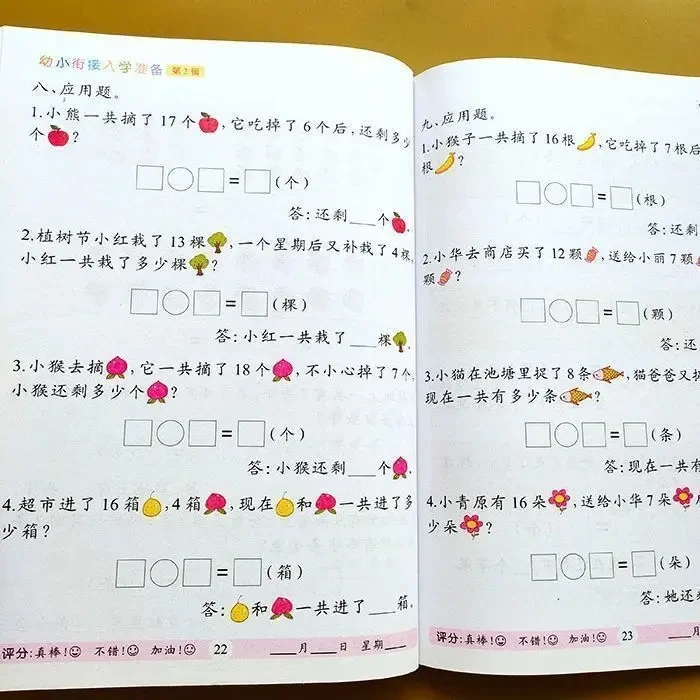 幼小衔接入学准备 第2辑
八、应用题。
1.小熊一共摘了17个,它吃掉了6个后,还剩多少
个?
=(个)
答:还剩___个。
2.植树节小红栽了13棵,一个星期后又补栽了4棵,
小红一共栽了多少棵?
=(棵)
答:小红一共栽了___棵。
3.小猴去摘,它一共摘了18个,不小心掉了7个,
小猴还剩多少个?
=(个)
答:小猴还剩___个。
4.超市进了16箱,4箱,现在和一共进了多
少箱?
=(箱)
答:和一共进了___箱。
评分:真棒! 不错! 加油! 22 ___月___日 星期___
九、应用题。
1.小猴子一共摘了16根,它吃掉了7根后
根?
=(根)
答:还剩
2.小华去商店买了12颗,送给小丽7颗
颗?
=(颗)
答:还
3.小猫在池塘里捉了8条,猫爸爸又
现在一共有多少条?
=(条)
答:现在一共有
4.小青原有16朵,送给小华7朵
少朵?
=(朵)
答:她还
评分:真棒! 不错! 加油! 23 ___月